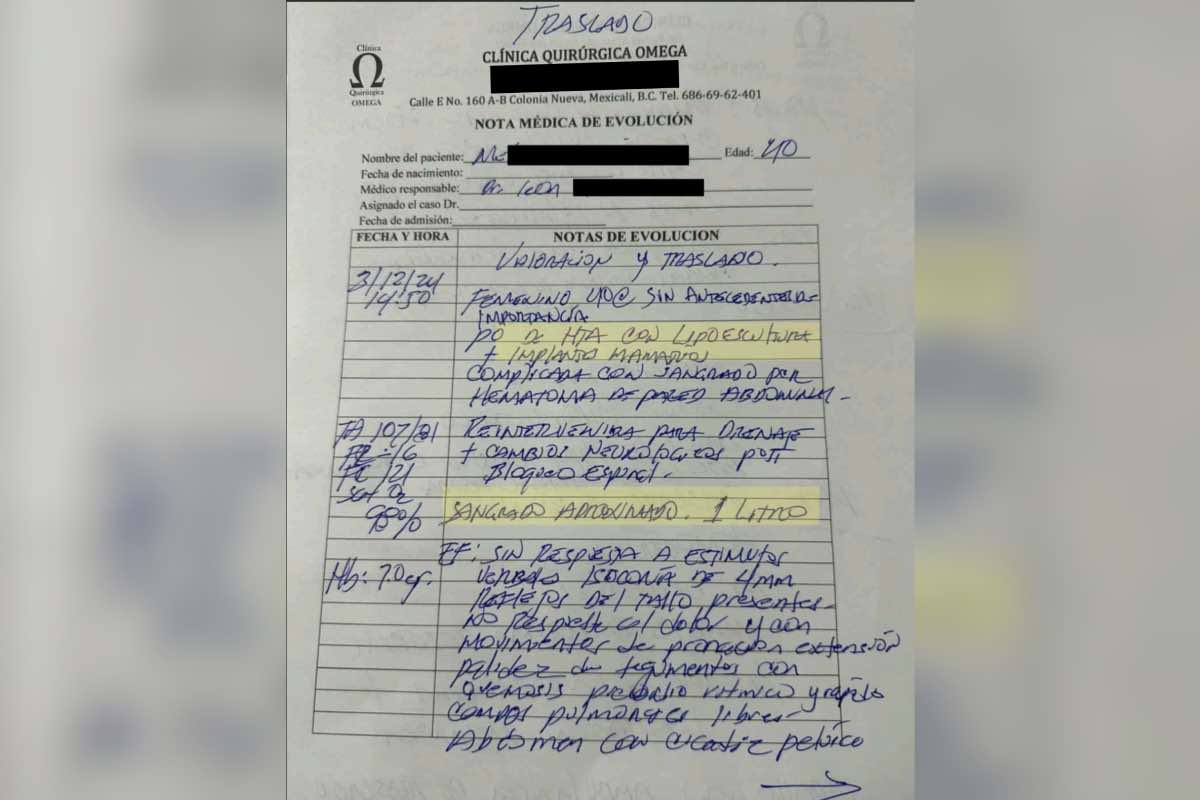 TRASLADO
Clínica
Ω
Quirúrgica
OMEGA
CLÍNICA QUIRÚRGICA OMEGA
Calle E No. 160 A-B Colonia Nueva, Mexicali, B.C. Tel. 686-69-62-401
NOTA MÉDICA DE EVOLUCIÓN
Nombre del paciente: Edad: 40
Fecha de nacimiento:
Médico responsable: Dr. Leon
Asignado el caso Dr.
Fecha de admisión:
FECHA Y HORA NOTAS DE EVOLUCION
VALORACION y TRASLADO.
3/12/24
14:50
FEMENINO 40@ SIN ANTECEDENTES DE
IMPORTANCIA
PO DE HTA CON LIPOESCULTURA
+ IMPLANTO MAMARIOS
COMPLICADA CON SANGRADO POR
HEMATOMA DE PARED ABDOMINAL -
TA 107/81 REINTERVENIDA PARA DRENAJE
FR - 16 + CAMBIOS NEUROLOGICOS POST
FC 121 BLOQUEO ESPINAL.
Sat O2
98% SANGRADO APROXIMADO. 1 LITRO
EF: SIN RESPUESTA A ESTIMULOS
Hb: 7.0 gr. VERBALES ISOCORIA DE 4MM
REFLEJOS DEL TALLO presentes-
no Respuesta al dolor y con
movimientos de pronacion extensión
palidez de tegumentos con
quemosis precordio ritmico y rapido
campos pulmonares libres-
Abdomen con cicatriz pelvica